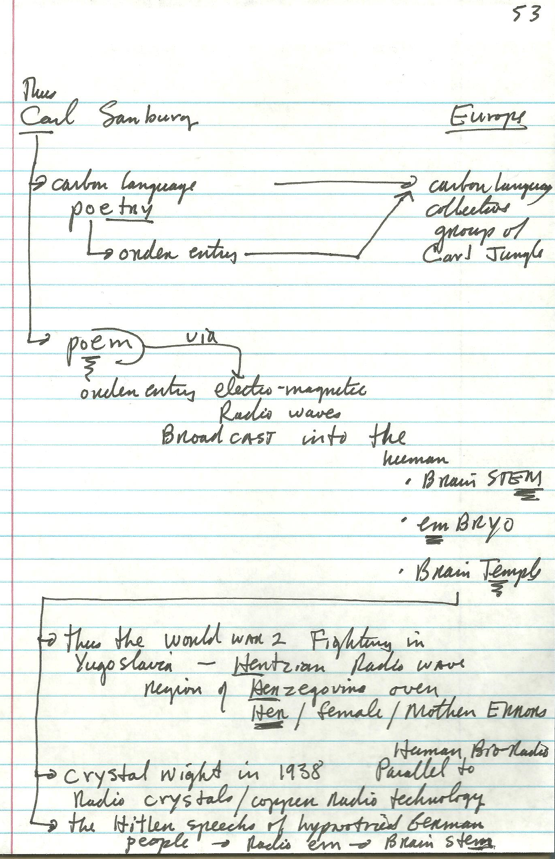 53
Thus
Carl Sanburg
Europe
carbon language
carbon language
poetry
collective
group of
Carl Jungle
order entry
poem via
order entry electro-magnetic
Radio waves
BROADCAST into the
human
• Brain STEM
• emBRYO
• Brain Temple
thus the World War 2 Fighting in
Yugoslavia — Hertzian Radio wave
region of Herzegovina over
Her / female / Mother Errors
Human Bio-Radio
Crystal Night in 1938 Parallel to
Radio crystals/copper Radio technology
the Hitler speeches of hypnotized German
people → Radio em → Brain stem